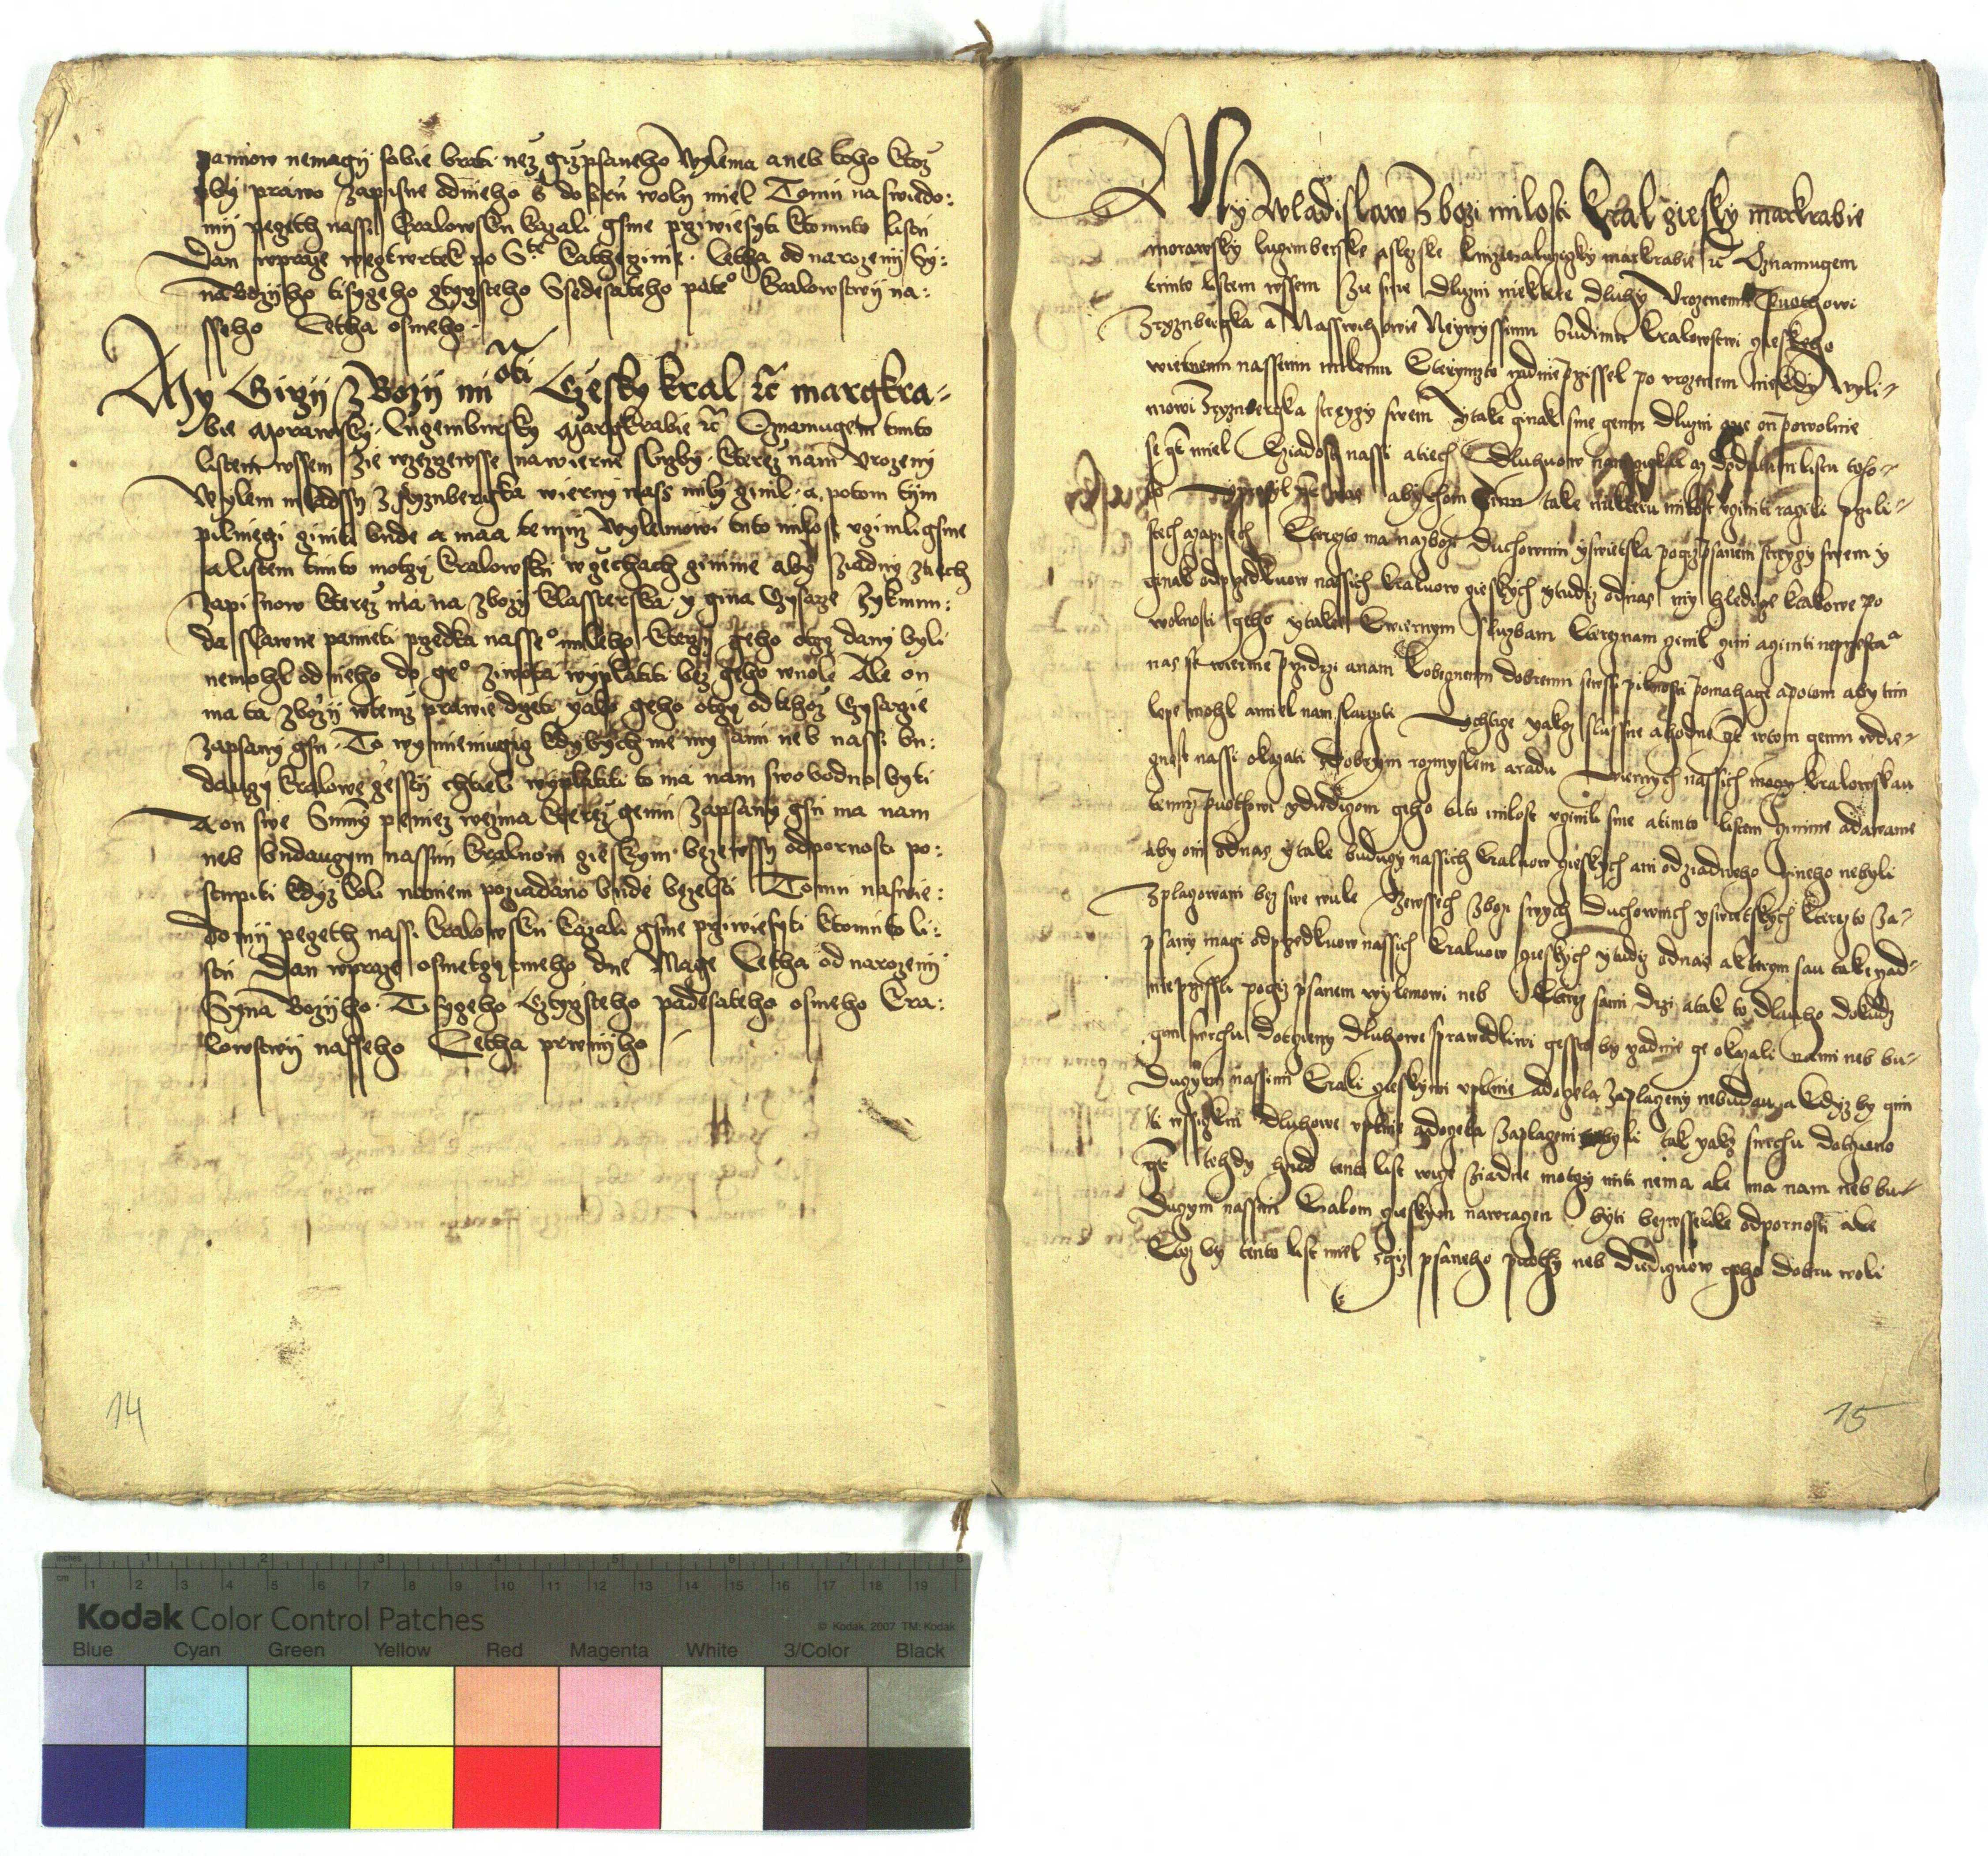 paniow nemagij sobie brati nez gizpsaneho Wylema aneb toho ktoz
by prawo zapisne odnieho s dobru woly miel Tomu na swiedo:
mij peget nassi kralowsku kazali gsme prziwiesyti ktomuto listu
Dan wpraze wegtwrtek po Ste Katherzinie Letha od narozenij Sy:
na bozijho tisygeho gtyrsteho Ssedesateho pateo kralowstwij na:
sseho Letha osmeho
My Girzij z Bozij miosti Czesky kral rc margkra-
bie Morawsky Lugemburgsky Margkrabie rc Oznamugem timto
listem wssem zie wzezrzewsse na wierne sluzby kterez nam Urozeny
Wylem mladssy z Ryzmbergka wierny nass mily ginil a potom tym
pilniegi giniti bude a maa temuz Wylemowi tuto milost vginili gsme
a listem timto motzy kralowsku w gechach ginime aby ziadny ztiech
zapisuow kterez ma na zbozij klassterska y gina Czysarze Zykmun:
da slawne pamieti przedka nasseo mileho kterzij geho otczy dany byli
nemohl od nieho do geo ziwota wyplatiti bez geho wuole Ale on
ma ta zbozij wtemz prawie drzeti yako geho otczy od tehoz Czysarzie
zapsany gsu To wyminiugig kdybychme my sami neb nassi bu:
daugy kralowe gesstij chtieli wyplatiti to ma nam swobodno byti
A on swe Summy peniez wezma kterez gemu zapsany gsu ma nam
neb budaugym nassim kraluom gieskym beze wssy odpornosti po:
stupiti kdyz koli wo niem poziadano bude bezelsti Tomu naswie:
domij peget nassi kralowsku kazali gsme prziwiesyti ktomuto li:
stu Dan wpraze osmetzytmeho dne Mage Letha od narozenij
Syna Bozijho Tisygeho Cztyrsteho padesateho osmeho Kra:
lowstwij nasseho Letha prwnijho
14
My Wladislaw Z bozi milosti Kral gieský markrabie
morawský lugemberske a slezske knize a luzygký markrabie rc Oznamugem
timto listem wssem Zie sme dluzni niektere dluhy Urozenemu Puothowi
Zryznbergka a Nasswihowie Neywyssimu Sudimu kralowstwi gieskeho
wiernemu nassemu milemu kterymzto rzadnie przissel po urozenem niekdy Wyli-
mowi Zryznbergka strygy swem Ytake ginak sme gemu dluzni a on powolnie
se gt miel kziadosti nassi a tiech dluhuow az dodatum listu toho-
to abychom gim take niekteru milost vginiti ragili przi li-
stech a zapisech kterezto ma nazbozi duchownim yswietska pogizpsanem strygy swem y
ginak odprzedkuow nassich kraluow gieskych ytudiz odnas my hledige takowe po
wolnosti geho ytake kwiernym sluzbam kterez nam ginil gini a giniti neprzesta
nas se wiernie przidrzi anam kobegnemu dobremu sewssi pilnosti pomahage apotom aby tim
lepe mohl amiel nam slauziti Uchtige yakz slussne ahodne gt wtom gemu wdie-
gnost nassi okazati Dobrym rozmyslem aradu wiernych nassich mogy kralowskau
temuz puothowi ydiedigom geho tuto milost vginili sme atimto listem ginime adawame
aby oni odnas ytake budugy nassich kraluow gieskych ani odziadneho gineho nebyli
zplagowani bez swe wule Zewssech zbozi swych duchownich yswietskych kterezto za-
psany magi odprzedkuow nassich kraluow gieskych ytudiz odnas akterym sau take rzad-
nie prissli pogiz psanem wylemowi neb kterez sami drzi atak to dlauho dokudz
gim swrchu dotgieny dluhowe sprawedliwi gesstozby rzadnie ge okazali nami neb bu-
dugymi nassimi krali gieskymi vplnie adogela zaplageny nebudau a kdyz by gim
ti wssigkni dluhowe vplnie adogela zaplageni byli tak yakz swrchu dotgieno
gt tehdy hned tento list wige ziadne motzy miti nema ale ma nam neb bu-
dugym nassim kralom gieskym nawragen byti bezewsselike odpornosti ale
ktoz by tento list miel zgiz psaneho puothy neb diediguow geho dobru woli
15
Kodak Color Control Patches
© Kodak, 2007 TM: Kodak
Blue Cyan Green Yellow Red Magenta White 3/Color Black